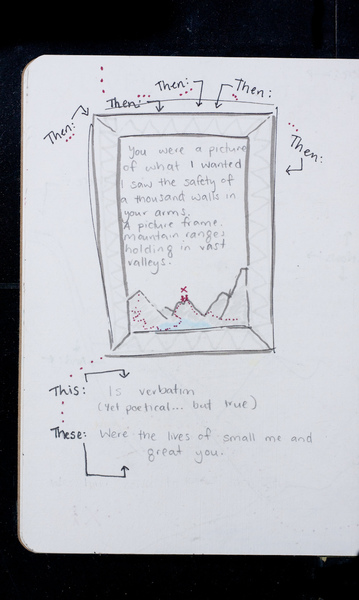 Then:
Then:
Then:
Then:
Then:
You were a picture
of what I wanted
I saw the safety of
a thousand walls in
your arms.
A picture frame.
mountain ranges
holding in vast
valleys.
This: Is verbatim
(Yet poetical... but true)
These: Were the lives of small me and
great you.